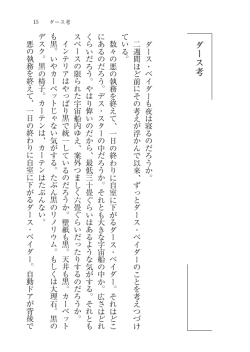 15 ダース考
ダース考
ダース・ベイダーも夜は寝るのだろうか。
二週間ほど前にその考えが浮かんで以来、ずっとダース・ベイダーのことを考えつづけ
ている。
数々の悪の執務を終えて、一日の終わりに自室に下がるダース・ベイダー。それはどこ
にあるのだろう。デス・スターの中だろうか。それとも大きな宇宙船の中か。広さはどれ
くらいだろう。やはり偉いのだから、最低三十畳ぐらいはあるような気がする。それとも
スペースの限られた宇宙船内ゆえ、案外つましく六畳ぐらいだったりするのだろうか。
インテリアはやっぱり黒で統一しているのだろうか。壁紙も黒。天井も黒。カーペット
も黒。いやカーペットじゃない気がする。たぶん黒のリノリウム。もしくは大理石。黒の
デスク。黒の椅子。カーテンは、カーテンはたぶんない。
悪の執務を終えて、一日の終わりに自室に下がるダース・ベイダー。自動ドアが背後で